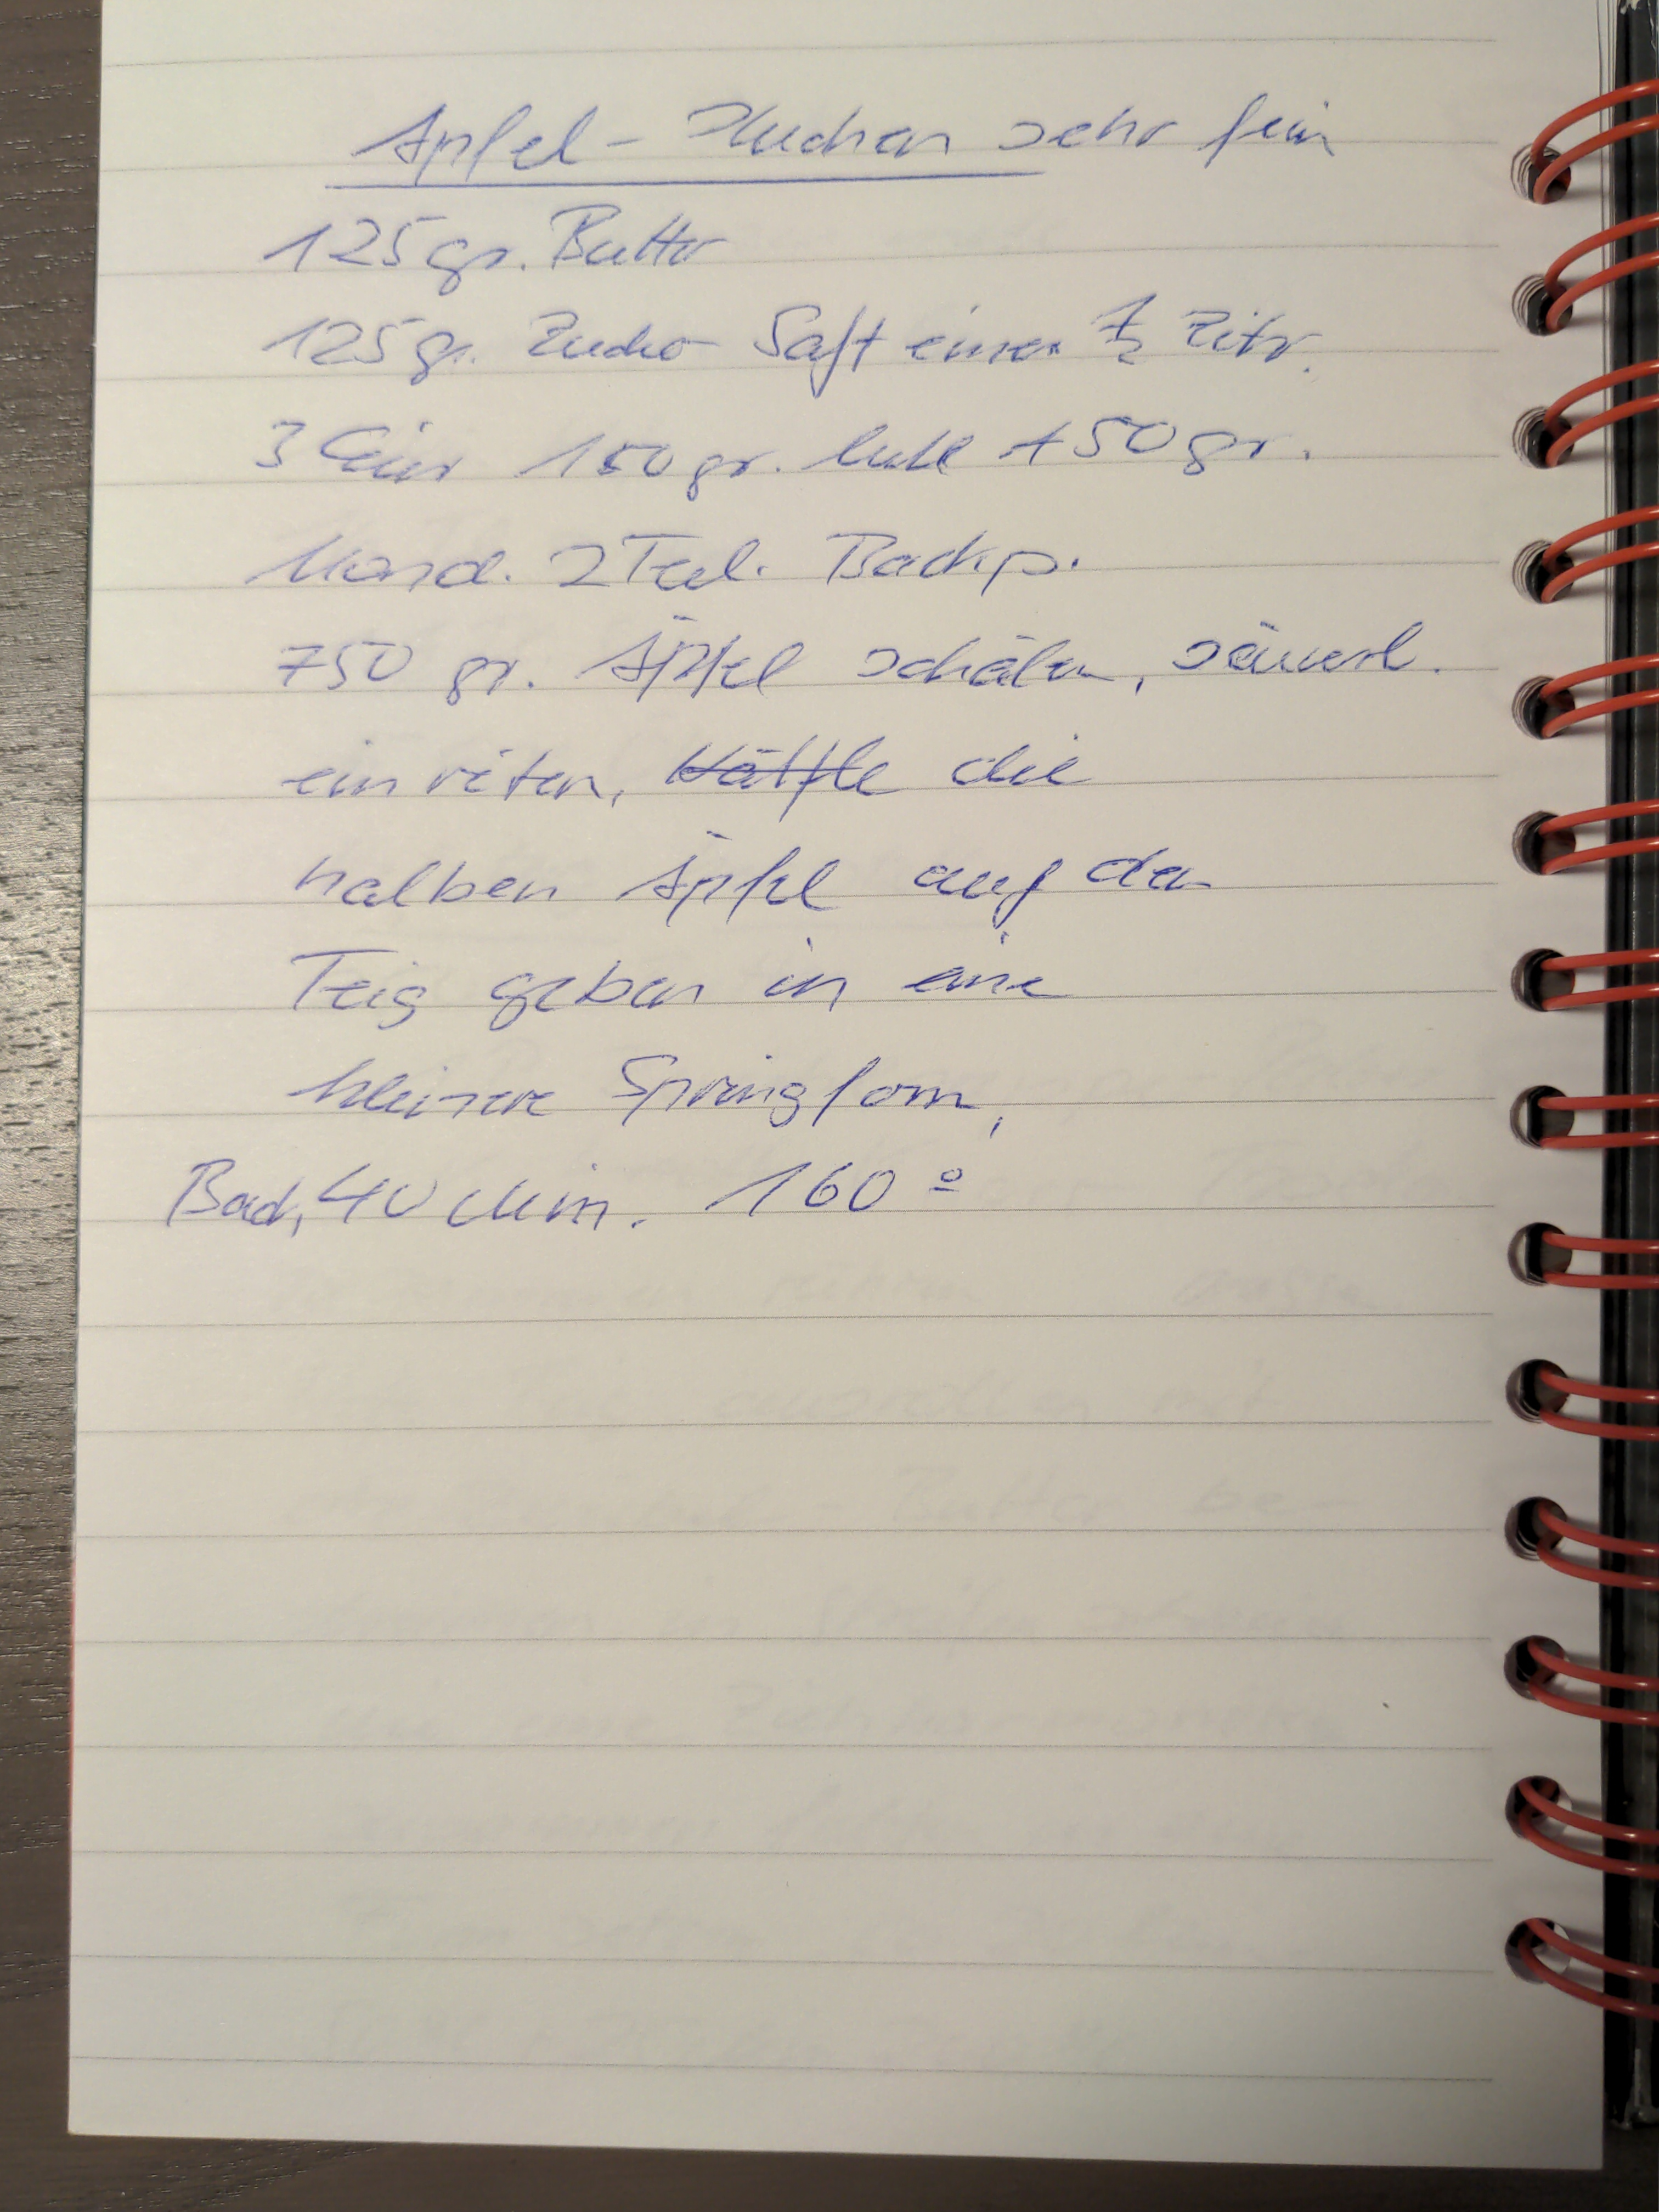 Apfel-Kuchen sehr fein
125 gr. Butter
125 gr. Zucker Saft einer 1/2 Zitr.
3 Eier 150 gr. Mehl + 50 gr.
Mand. 2 Teel. Backp.
750 gr. Äpfel schälen, säuerl.
einritzen, Hälfte die
halben Äpfel auf den
Teig geben in eine
kleinere Springform,
Back. 40 Min. 160º